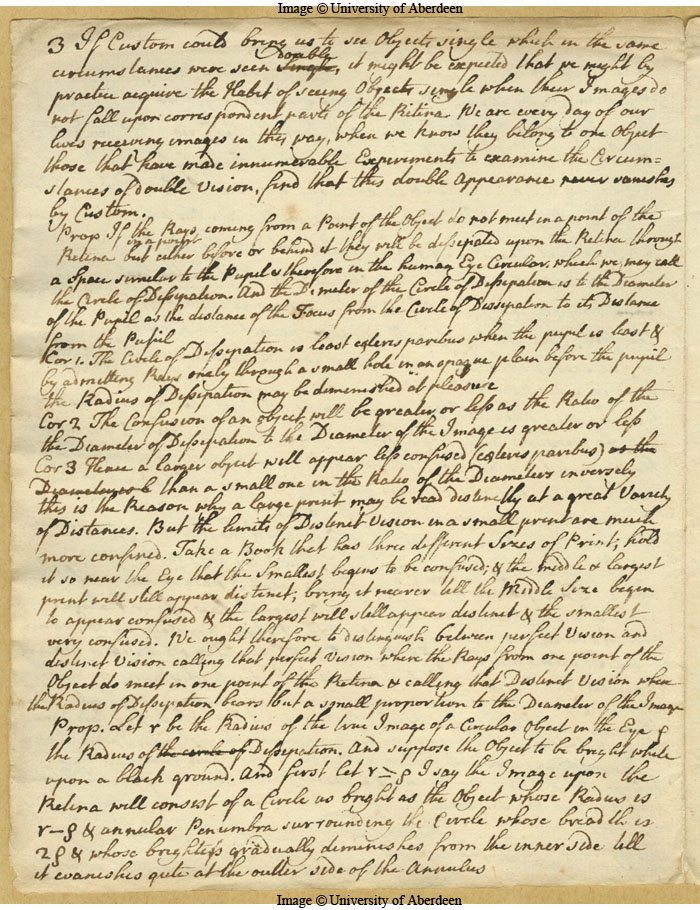 Image © University of Aberdeen
3 If Custom could bring us to see Objects single which in the same
circumstances were seen Single, double it might be expected that we might by
practice acquire the Habit of seeing Objects single when their Images do
not fall upon correspondent parts of the Retina. We are every day of our
lives receiving images in this way, when we know they belong to one Object
those that have made innumerable Experiments to examine the Circum=
stances of double Vision, find that this double Appearance never vanishes
by Custom.
Prop If the Rays, coming from a Point of the Object do not meet in a point of the
Retina but in a point either before or behind it they will be dissipated upon the Retina through
a Space similar to the Pupil & therefore in the human Eye Circular, which we may call
the Circle of Dissipation. And the Diameter of the Circle of Dissipation is to the Diameter
of the Pupil as the distance of the Focus from the Circle of Dissipation to its Distance
from the Pupil
Cor 1. The Circle of Dissipation is least cæteris paribus when the pupil is least &
by admitting Rays onely through a small hole in an opaque plain before the pupil
the Radius of Dissipation may be diminished at pleasure
Cor 2 The Confusion of an object will be greater, or less as the Ratio of the
the Diameter of Dissipation to the Diameter of the Image is greater or less
Cor 3 Hence a larger object will appear less confused (cæteris paribus) as the
Diameter is than a small one in the Ratio of the Diameters inversely
this is the Reason why a large print may be read distinctly at a great Variety
of Distances. But the limits of Distinct Vision in a small print are much
more confined. Take a Book that has three different Sizes of Print, hold
it so near the Eye that the Smallest begins to be confused; & the middle & largest
print will still appear distinct; bring it nearer till the Middle Size begin
to appear confused & the largest will still appear distinct & the smallest
very confused. We ought therefore to distinguish between perfect Vision and
distinct Vision calling that perfect Vision where the Rays from one point of the
Object do meet in one point of the Retina & calling that Distinct Vision where
the Radius of Dissipation bears but a small proportion to the Diameter of the Image
Prop. Let r be the Radius of the true Image of a Circular Object in the Eye ρ
the Radius of the circle of Dissipation. And suppose the Object to be bright white
upon a black ground. And first let r = ρ I say the Image upon the
Retina will consist of a Circle as bright as the Object whose Radius is
r – ρ & annular Penumbra surrounding the Circle whose breadth is
2ρ & whose brightness gradually diminishes from the inner side till
it evanishes quite at the outter side of the Annulus
Image © University of Aberdeen